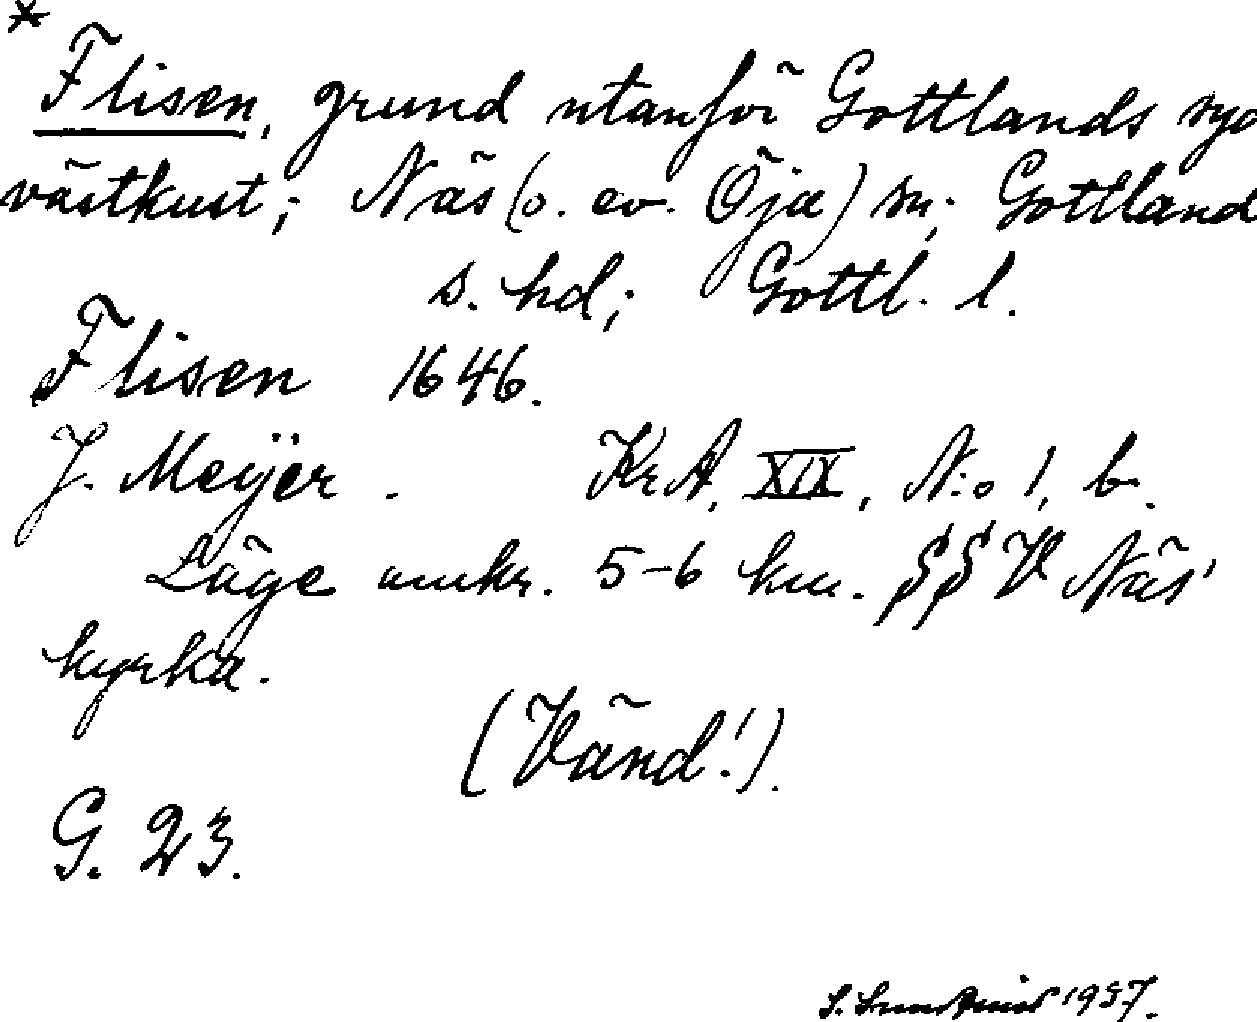 *
Flisen, grund utanför Gottlands syd
västkust; Näs (o. ev. Öja) sn; Gottland
s. hd; Gottl. l.
Flisen 1646.
J. Meÿer. KrA, XIX, N:o 1, b.
Läge omkr. 5-6 km. §§V Näs'
kyrka.
(Vänd!).
G. 23.
S. 1937.